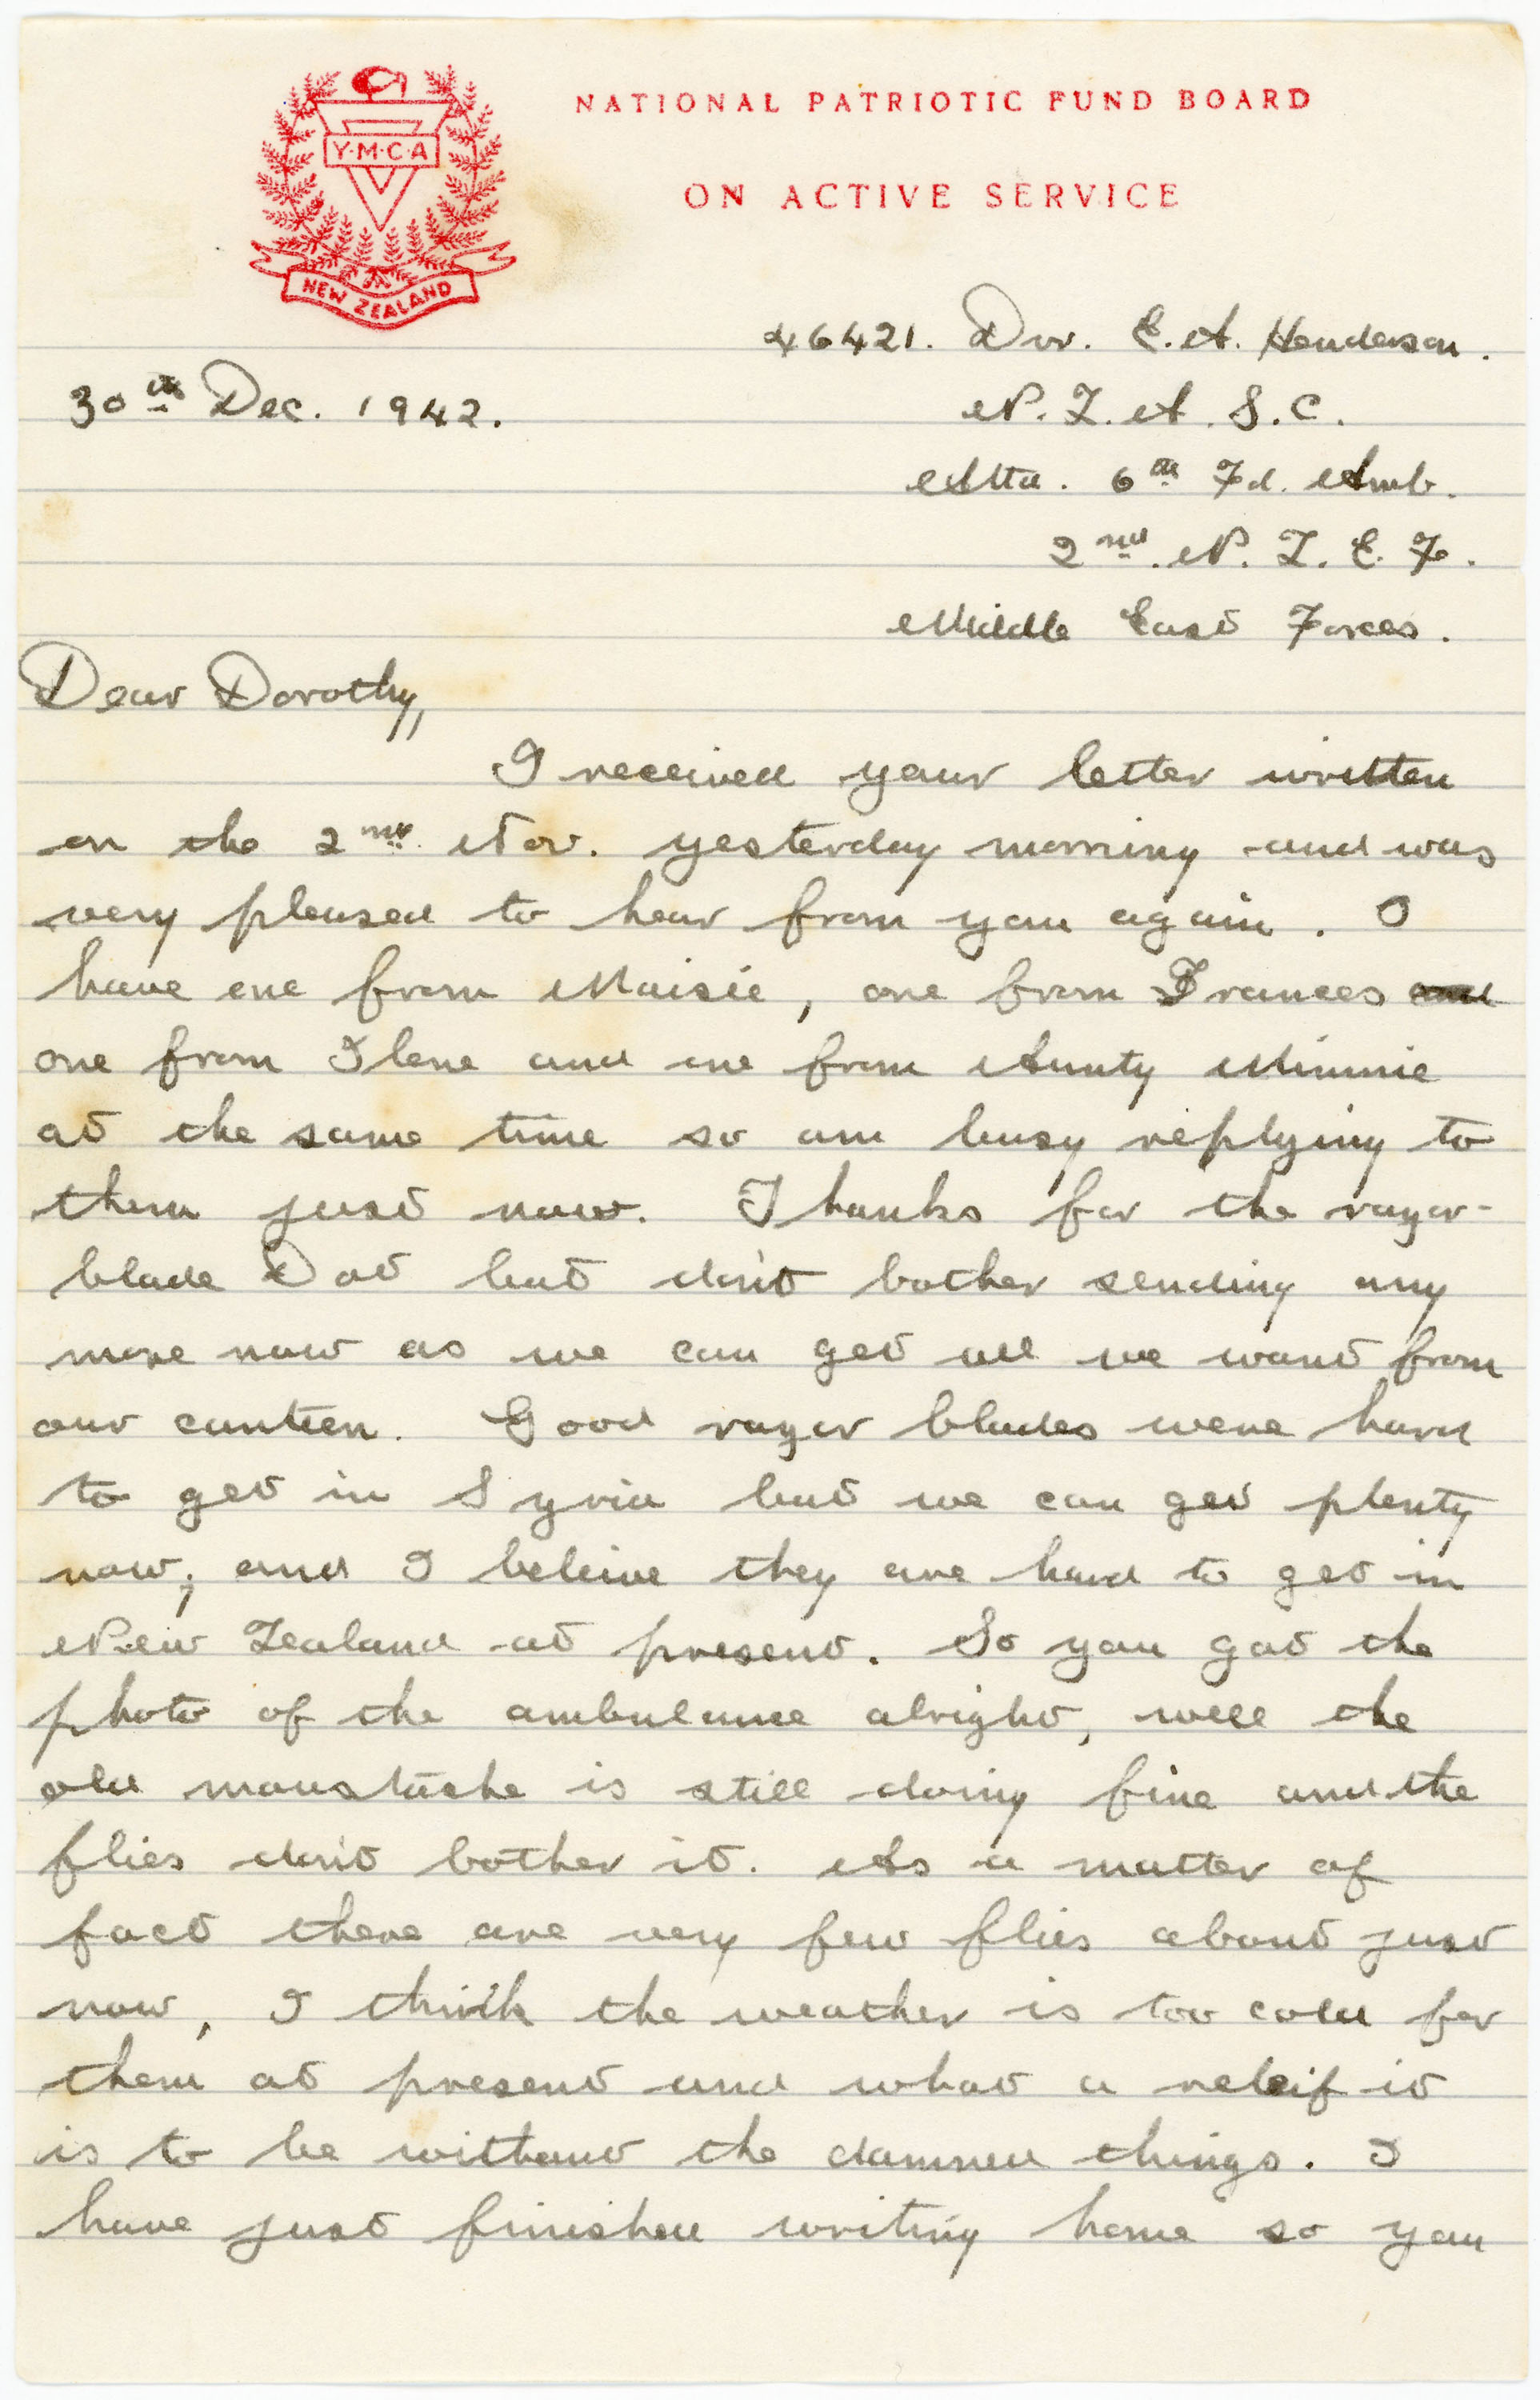 NATIONAL PATRIOTIC FUND BOARD
ON ACTIVE SERVICE
Y·M·C·A
NEW ZEALAND
46421. Dvr. E. A. Henderson.
30th Dec. 1942.
N. Z. A. S. C.
Att'd. 6th Fd. Amb.
2nd. N. Z. E. F.
Middle East Forces.
Dear Dorothy,
I received your letter written
on the 2nd. Nov. yesterday morning and was
very pleased to hear from you again. I
have one from Maisie, one from Frances
one from Ilene and one from Aunty Minnie
at the same time so am busy replying to
them just now. Thanks for the razor-
blade Dot but don't bother sending any
more now as we can get all we want from
our canteen. Good razor blades were hard
to get in Syria but we can get plenty
now; and I beleive they are hard to get in
New Zealand at present. So you got the
photo of the ambulance alright, well the
old moustache is still doing fine and the
flies don't bother it. As a matter of
fact there are very few flies about just
now, I think the weather is too cold for
them at present and what a releif it
is to be without the damned things. I
have just finished writing home so you